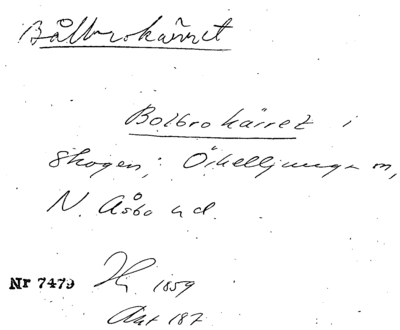 Bålbrokärret
Bolbrokärret i
skogen; Örkelljunga sn,
N. Åsbo hd.
Nr 7479 Hg. 1859
Akt 187